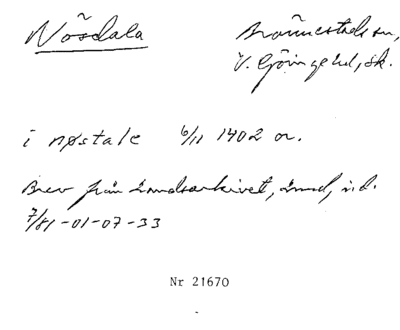 Nösdala
Brönnestads sn,
V. Göinge hd, Sk.
i nøstale 6/11 1402 or.
Brev från Landsarkivet, Lund, i d.
7/81-01-07-33
Nr 21670